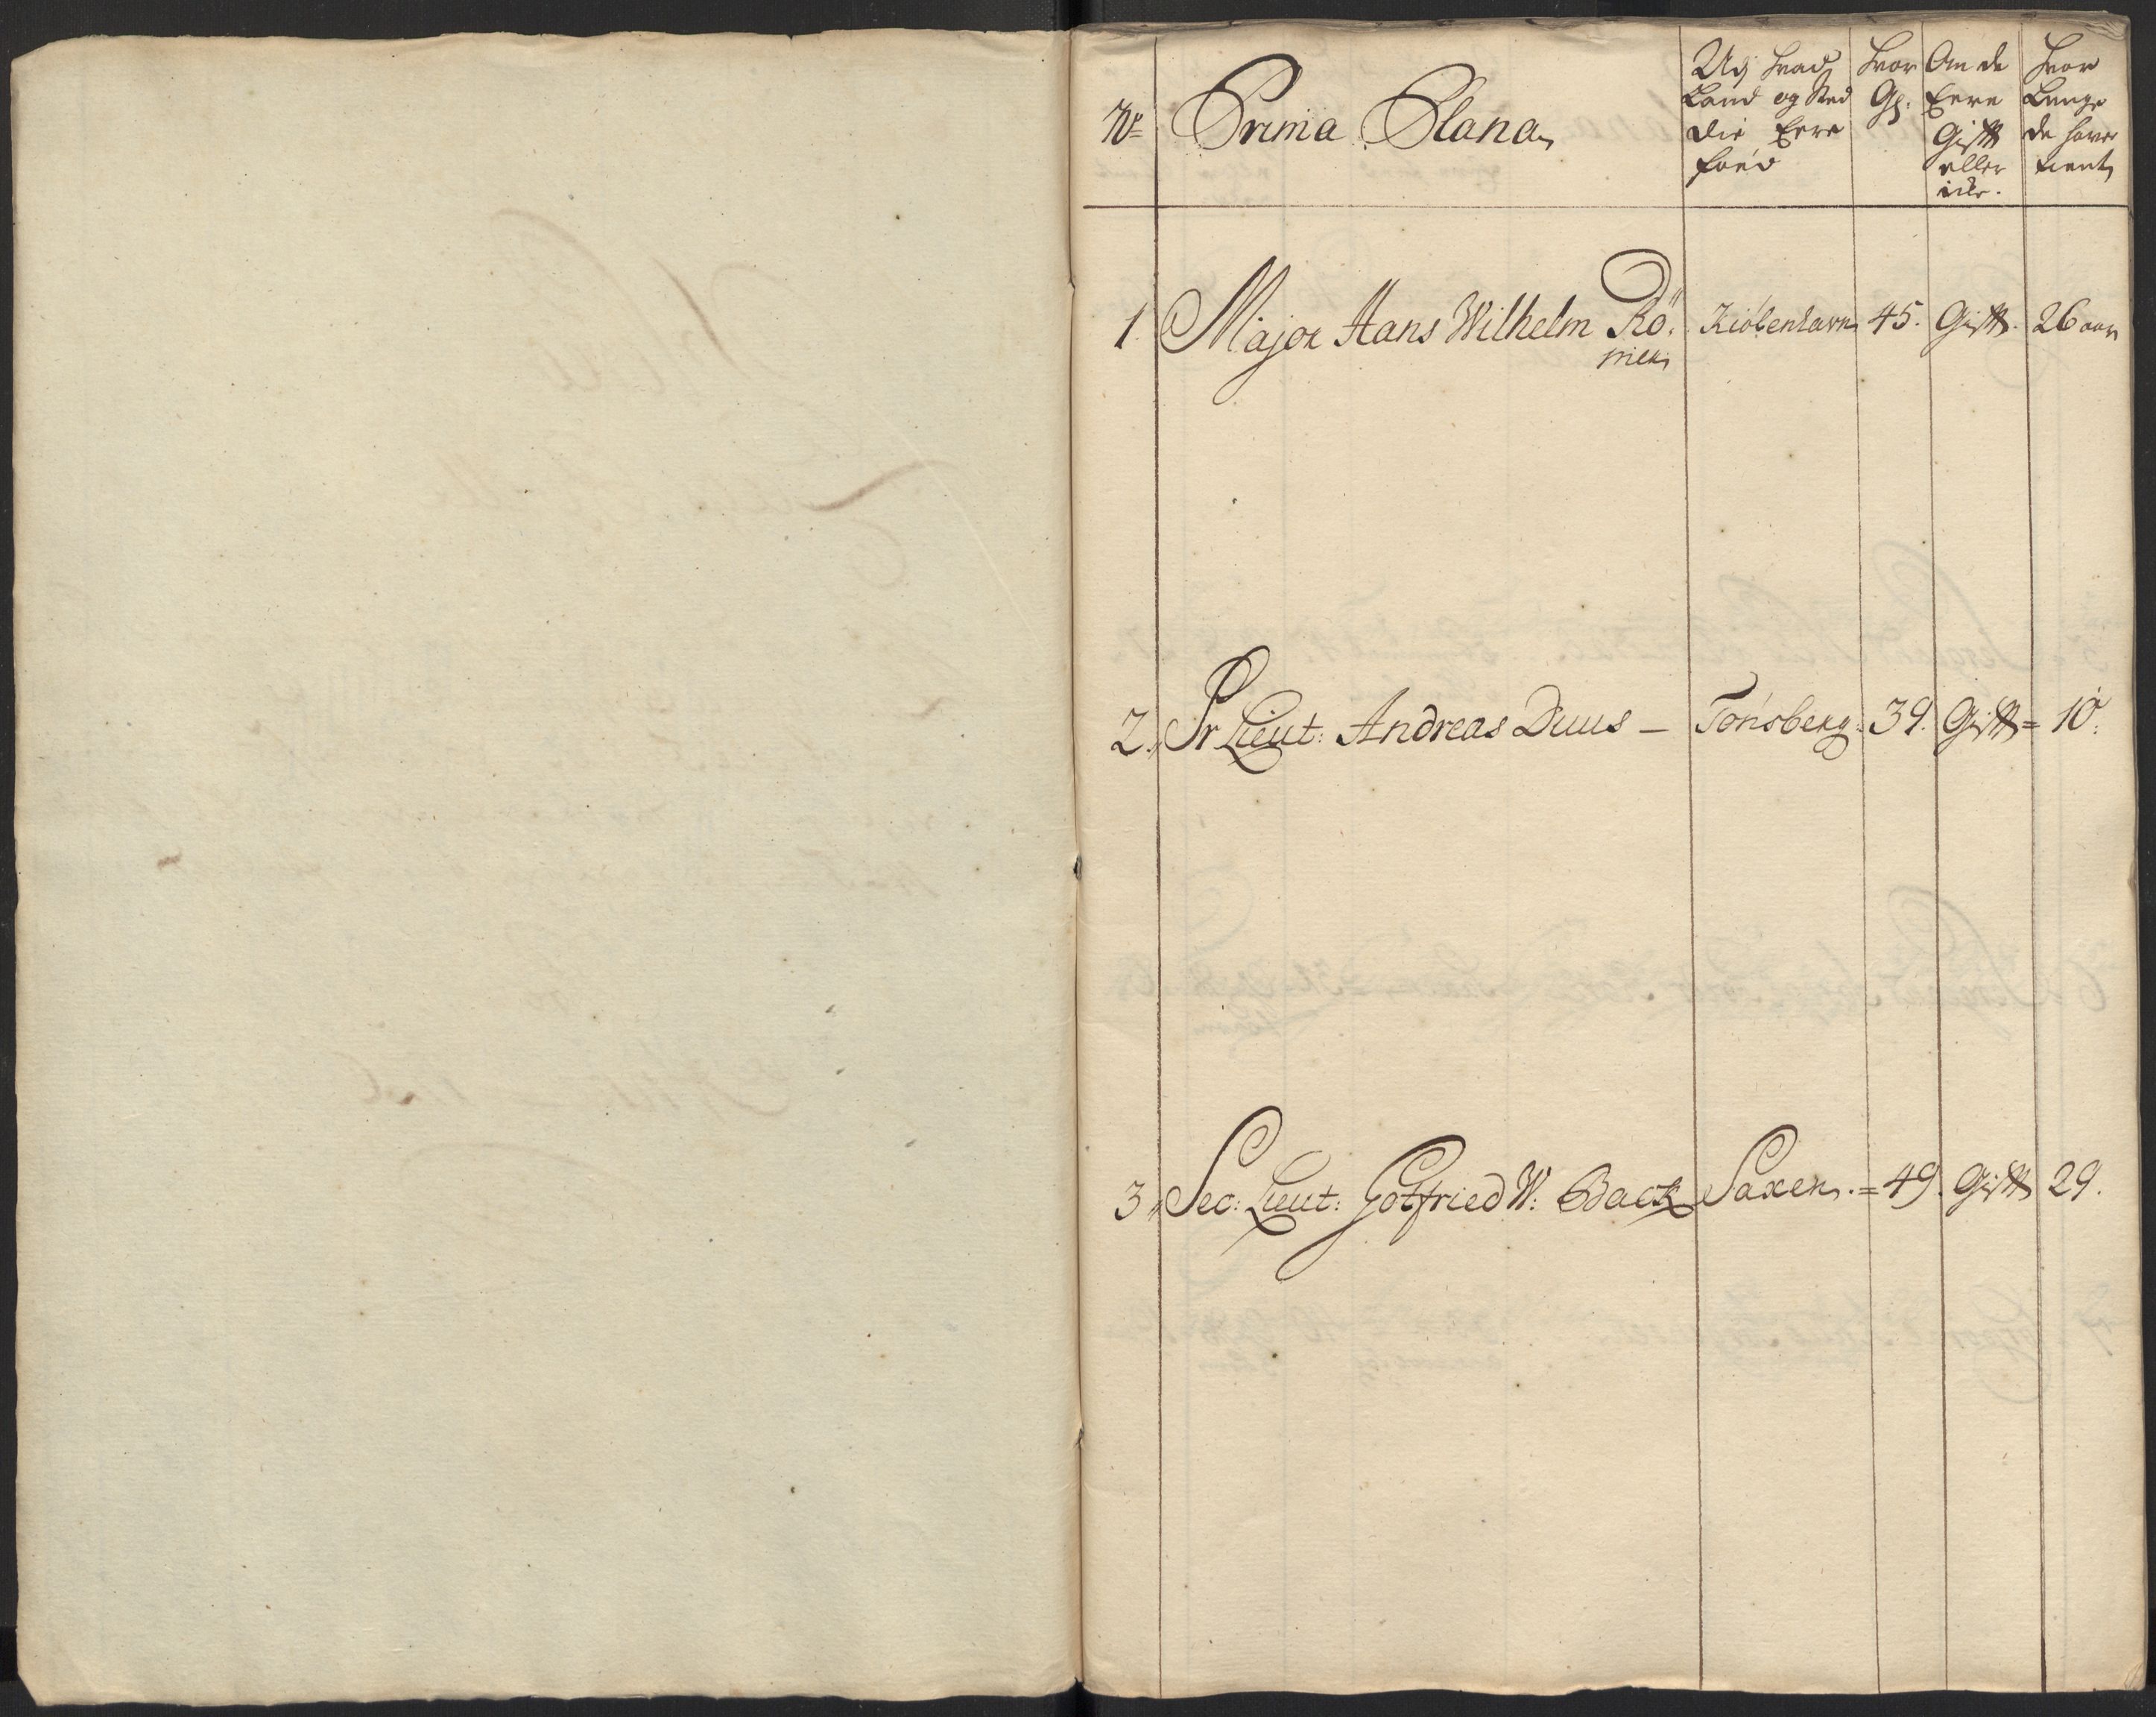 No Prima Plana Udj hvad Land og Sted die Ere Føed Hvor Gl. Om de Ere Gift eller icke. Hvor Lenge de haver tient
1. Major Hans Wilhelm Rö: Kiöbenhavn 45. Gift. 26 aar
mer
2. Pr Lieut: Andreas Duus — Tonsberg. 39. Gift = 10.
3. Sec: Lieut: Gotfried W: Back Saxen. = 49. Gift 29.